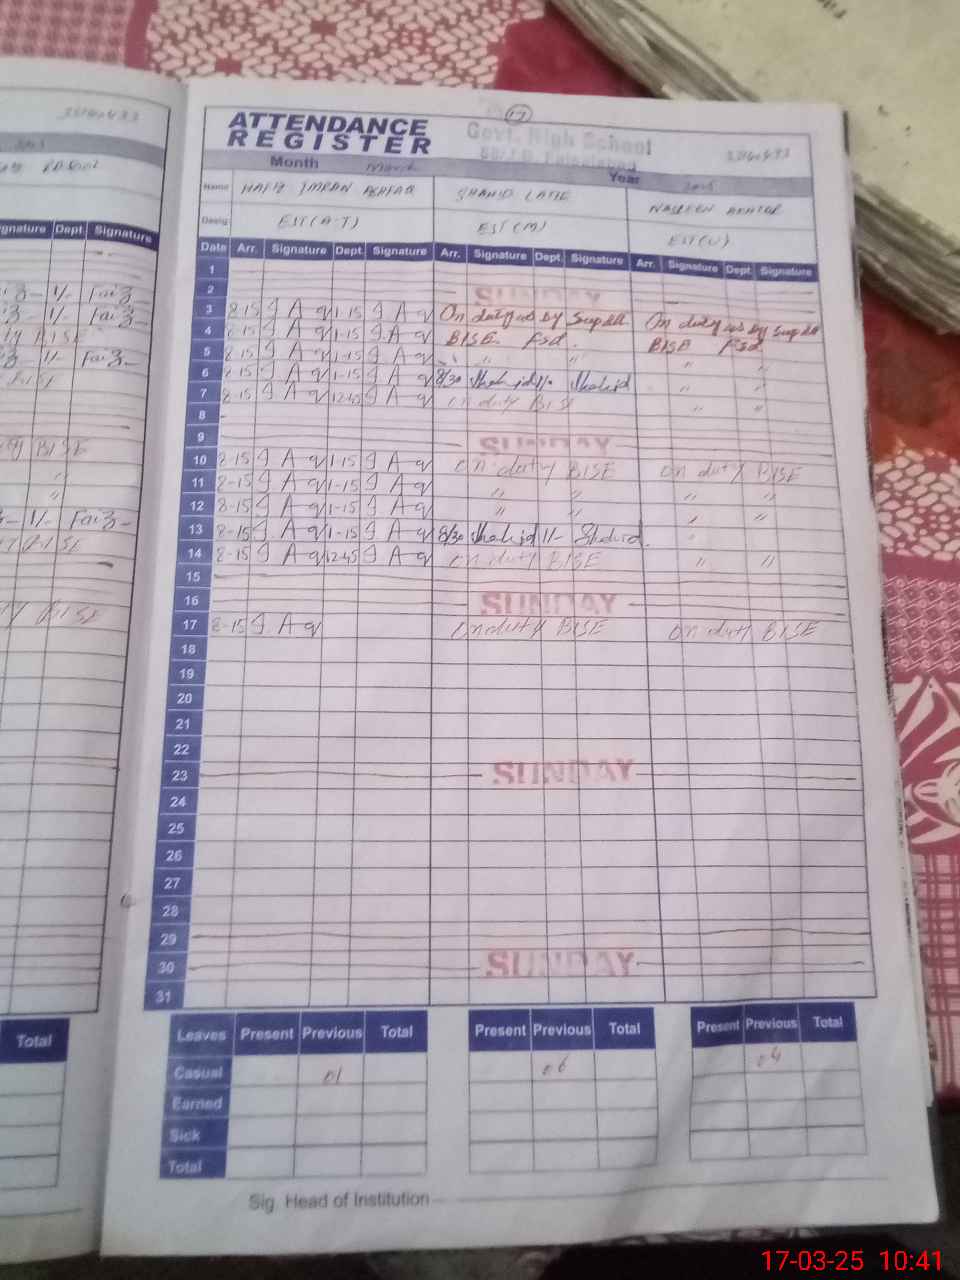 17
ATTENDANCE
REGISTER
Govt. High School
Month March Year 2025
Name HAFIZ IMRAN ASHFAQ SHAHID LATIF NASREEN AKHTAR
Desig. EST(A-T) EST(M) EST(U)
Date Arr. Signature Dept. Signature Arr. Signature Dept. Signature Arr. Signature Dept. Signature
1
2 SUNDAY
3 8-15 I A q 1-15 I A q On duty as by Supdt On duty as by Supdt
4 8-15 I A q 1-15 I A q BISE Fsd. BISE Fsd
5 8-15 I A q 1-15 I A q " " " "
6 8-15 I A q 1-15 I A q 8/30 Shahid 1/- Shahid " "
7 8-15 I A q 12-45 I A q on duty BISE " "
8
9 SUNDAY
10 8-15 I A q 1-15 I A q on duty BISE on duty BISE
11 8-15 I A q 1-15 I A q " " " "
12 8-15 I A q 1-15 I A q " " " "
13 8-15 I A q 1-15 I A q 8/30 Shahid 1/- Shahid "
14 8-15 I A q 12-45 I A q on duty BISE " "
15
16 SUNDAY
17 8-15 I. A q On duty BISE On duty BISE
18
19
20
21
22
23 SUNDAY
24
25
26
27
28
29
30 SUNDAY
31
Leaves Present Previous Total Present Previous Total Present Previous Total
Casual 01 06 04
Earned
Sick
Total
Sig. Head of Institution
Signature Dept. Signature
1/- Faiz
1/- Faiz
BISE
1/- Faiz
BISE
BISE
"
"
1/- Faiz
BISE
BISE
Total
17-03-25 10:41